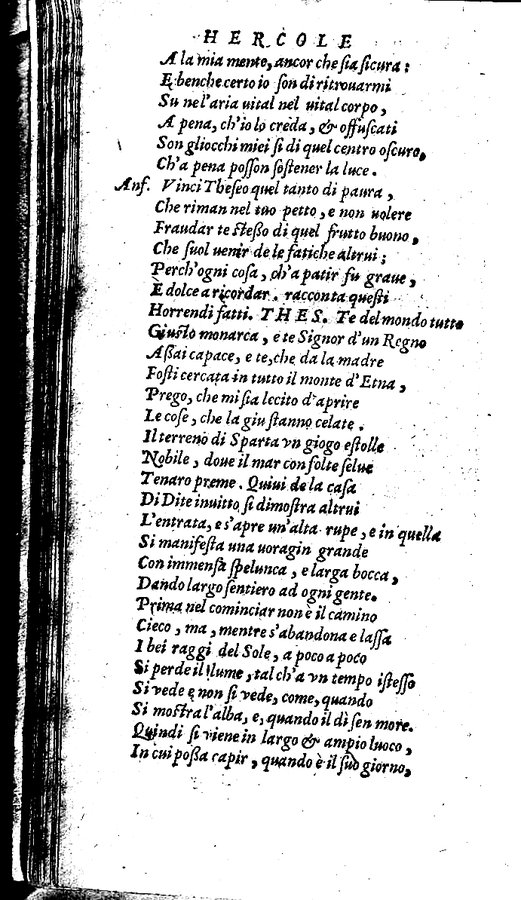 HERCOLE
A la mia mente, ancor che sia sicura:
E benche certo io son di ritrouarmi
Su nel'aria uital nel uital corpo,
A pena, ch'io lo creda, & offuscati
Son gliocchi miei si di quel centro oscuro,
Ch'a pena posson sostener la luce.
Anf. Vinci Theseo quel tanto di paura,
Che riman nel tuo petto, e non uolere
Fraudar te stesso di quel frutto buono,
Che suol uenir de le fatiche altrui;
Perch'ogni cosa, ch'a patir fu graue,
È dolce a ricordar. racconta questi
Horrendi fatti. THES. Te del mondo tutto
Giusto monarca, e te Signor d'un Regno
Assai capace, e te, che da la madre
Fosti cercata in tutto il monte d'Etna,
Prego, che mi sia lecito d'aprire
Le cose, che la giu stanno celate.
Il terreno di Sparta vn giogo estolle
Nobile, doue il mar con folte selue
Tenaro preme. Quiui de la casa
Di Dite inuitto si dimostra altrui
L'entrata, e s'apre un'alta rupe, e in quella
Si manifesta una uoragin grande
Con immensa spelunca, e larga bocca,
Dando largo sentiero ad ogni gente.
Prima nel cominciar non è il camino
Cieco, ma, mentre s'abandona e lassa
I bei raggi del Sole, a poco a poco
Si perde il lume, tal ch'a vn tempo istesso
Si vede e non si vede, come, quando
Si mostra l'alba, e, quando il dì sen more.
Quindi si viene in largo & ampio luoco,
In cui possa capir, quando è il suo giorno,